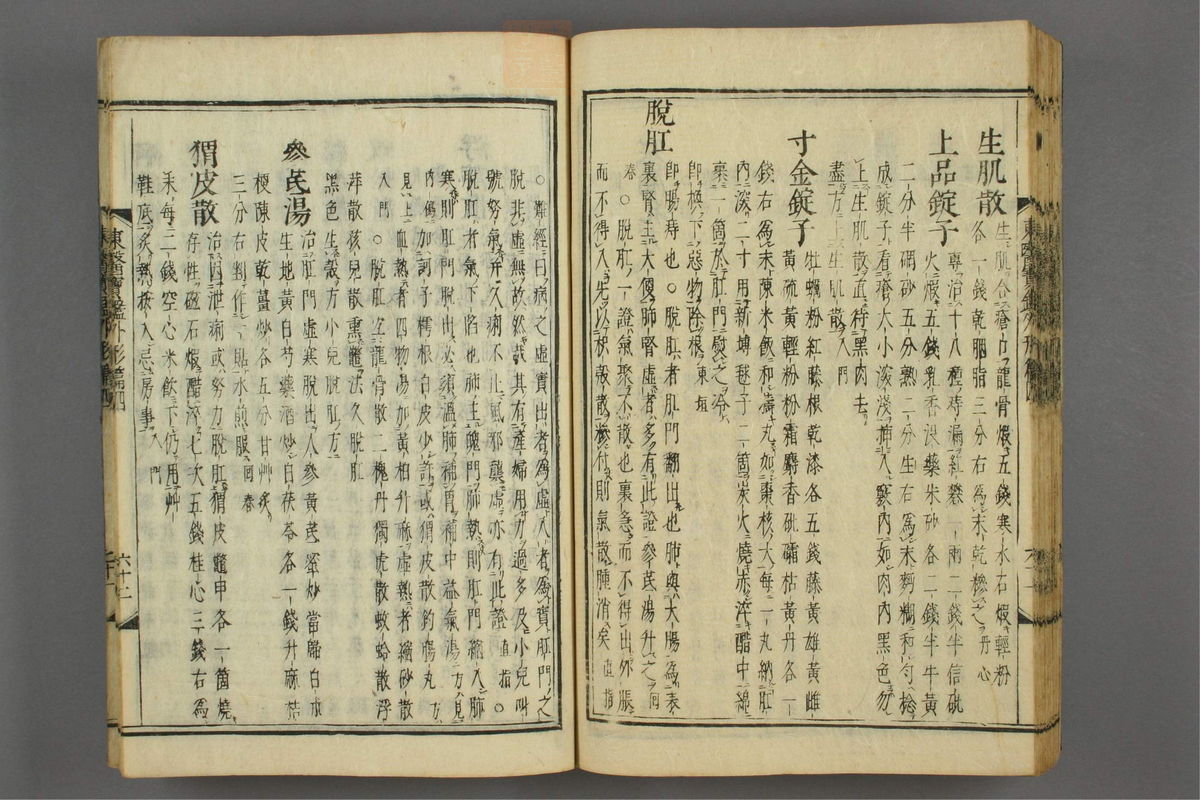 生肌散 生肌合瘡口龍骨煅五錢寒水石煅輕粉
各一錢乾胭脂三分右爲末乾糝之丹心
上品錠子 專治十八種痔漏紅礬二兩二錢半信砒
火煅五錢乳香沒藥朱砂各二錢半牛黃
二分半硇砂五分熟二分生右爲末麪糊和勻捻
成錠子看瘡大小深淺揷入竅內如肉內黑色勿
上生肌散直待黑肉去
盡方上生肌散入門
寸金錠子 牡蠣粉紅藤根乾漆各五錢藤黃雄黃雌
黃硫黃輕粉粉霜麝香砒礵枯黃丹各一
錢右爲末陳米飯和壽丸如棗核大每一丸納肛
內深二寸用新塼毬子二箇炭火燒赤淬醋中綿
裹一箇於肛門熨之冷
卽換下惡物除根東垣
脫肛 卽腸痔也○脫肛者肛門翻出也肺與大腸爲表
裏腎主大便肺腎虛者多有此證參芪湯升之回
春○脫肛一證氣聚不散也裏急而不得出外脹
而不得入先以枳殼散糝付則氣散腫消矣直指
東醫寶鑑外形篇四
○難經曰病之虛實出者爲虛入者爲實肛門之
脫非虛無故然哉其有產婦用力過多及小兒叫
號努氣并久痢不止風邪襲虛亦有此證直指○
脫肛者氣下陷也肺主魄門肺熱則肛門縮入肺
寒則肛門脫出必須溫肺補胃補中益氣湯方見
內傷加訶子樗根白皮少許或猬皮散釣腸丸方
見上血熱者四物湯加黃柏升麻虛熱者縮砂散
入門○脫肛宜龍骨散二槐丹獨虎散蚊蛤散浮
萍散梭兒散熏鼈法久脫肛
黑色生殼方小兒脫肛方
參芪湯 治肛門虛寒脫出人參黃芪蜜炒當歸白朮
生地黃白芍藥酒炒白茯苓各一錢升麻桔
梗陳皮乾薑炒各五分甘艸灸
三分右剉作一貼水煎服回春
猬皮散 治因泄痢或努力脫肛猬皮鼈甲各一箇燒
存性磁石煅醋淬七次五錢桂心三錢右爲
末每二錢空心米飮下仍用艸
鞋底灸熱按入忌房事入門
東醫寶鑑外形篇四
六十二